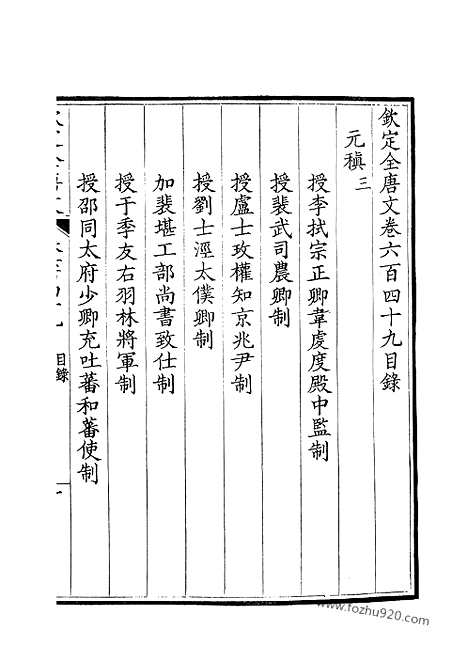 欽定全唐文卷六百四十九目錄
元稹三
授李拭宗正卿韋虔度殿中監制
授裴武司農卿制
授盧士玫權知京兆尹制
授劉士涇太僕卿制
加裴堪工部尚書致仕制
授于季友右羽林將軍制
授邵同太府少卿充吐蕃和蕃使制
目錄
www.fozhu920.com